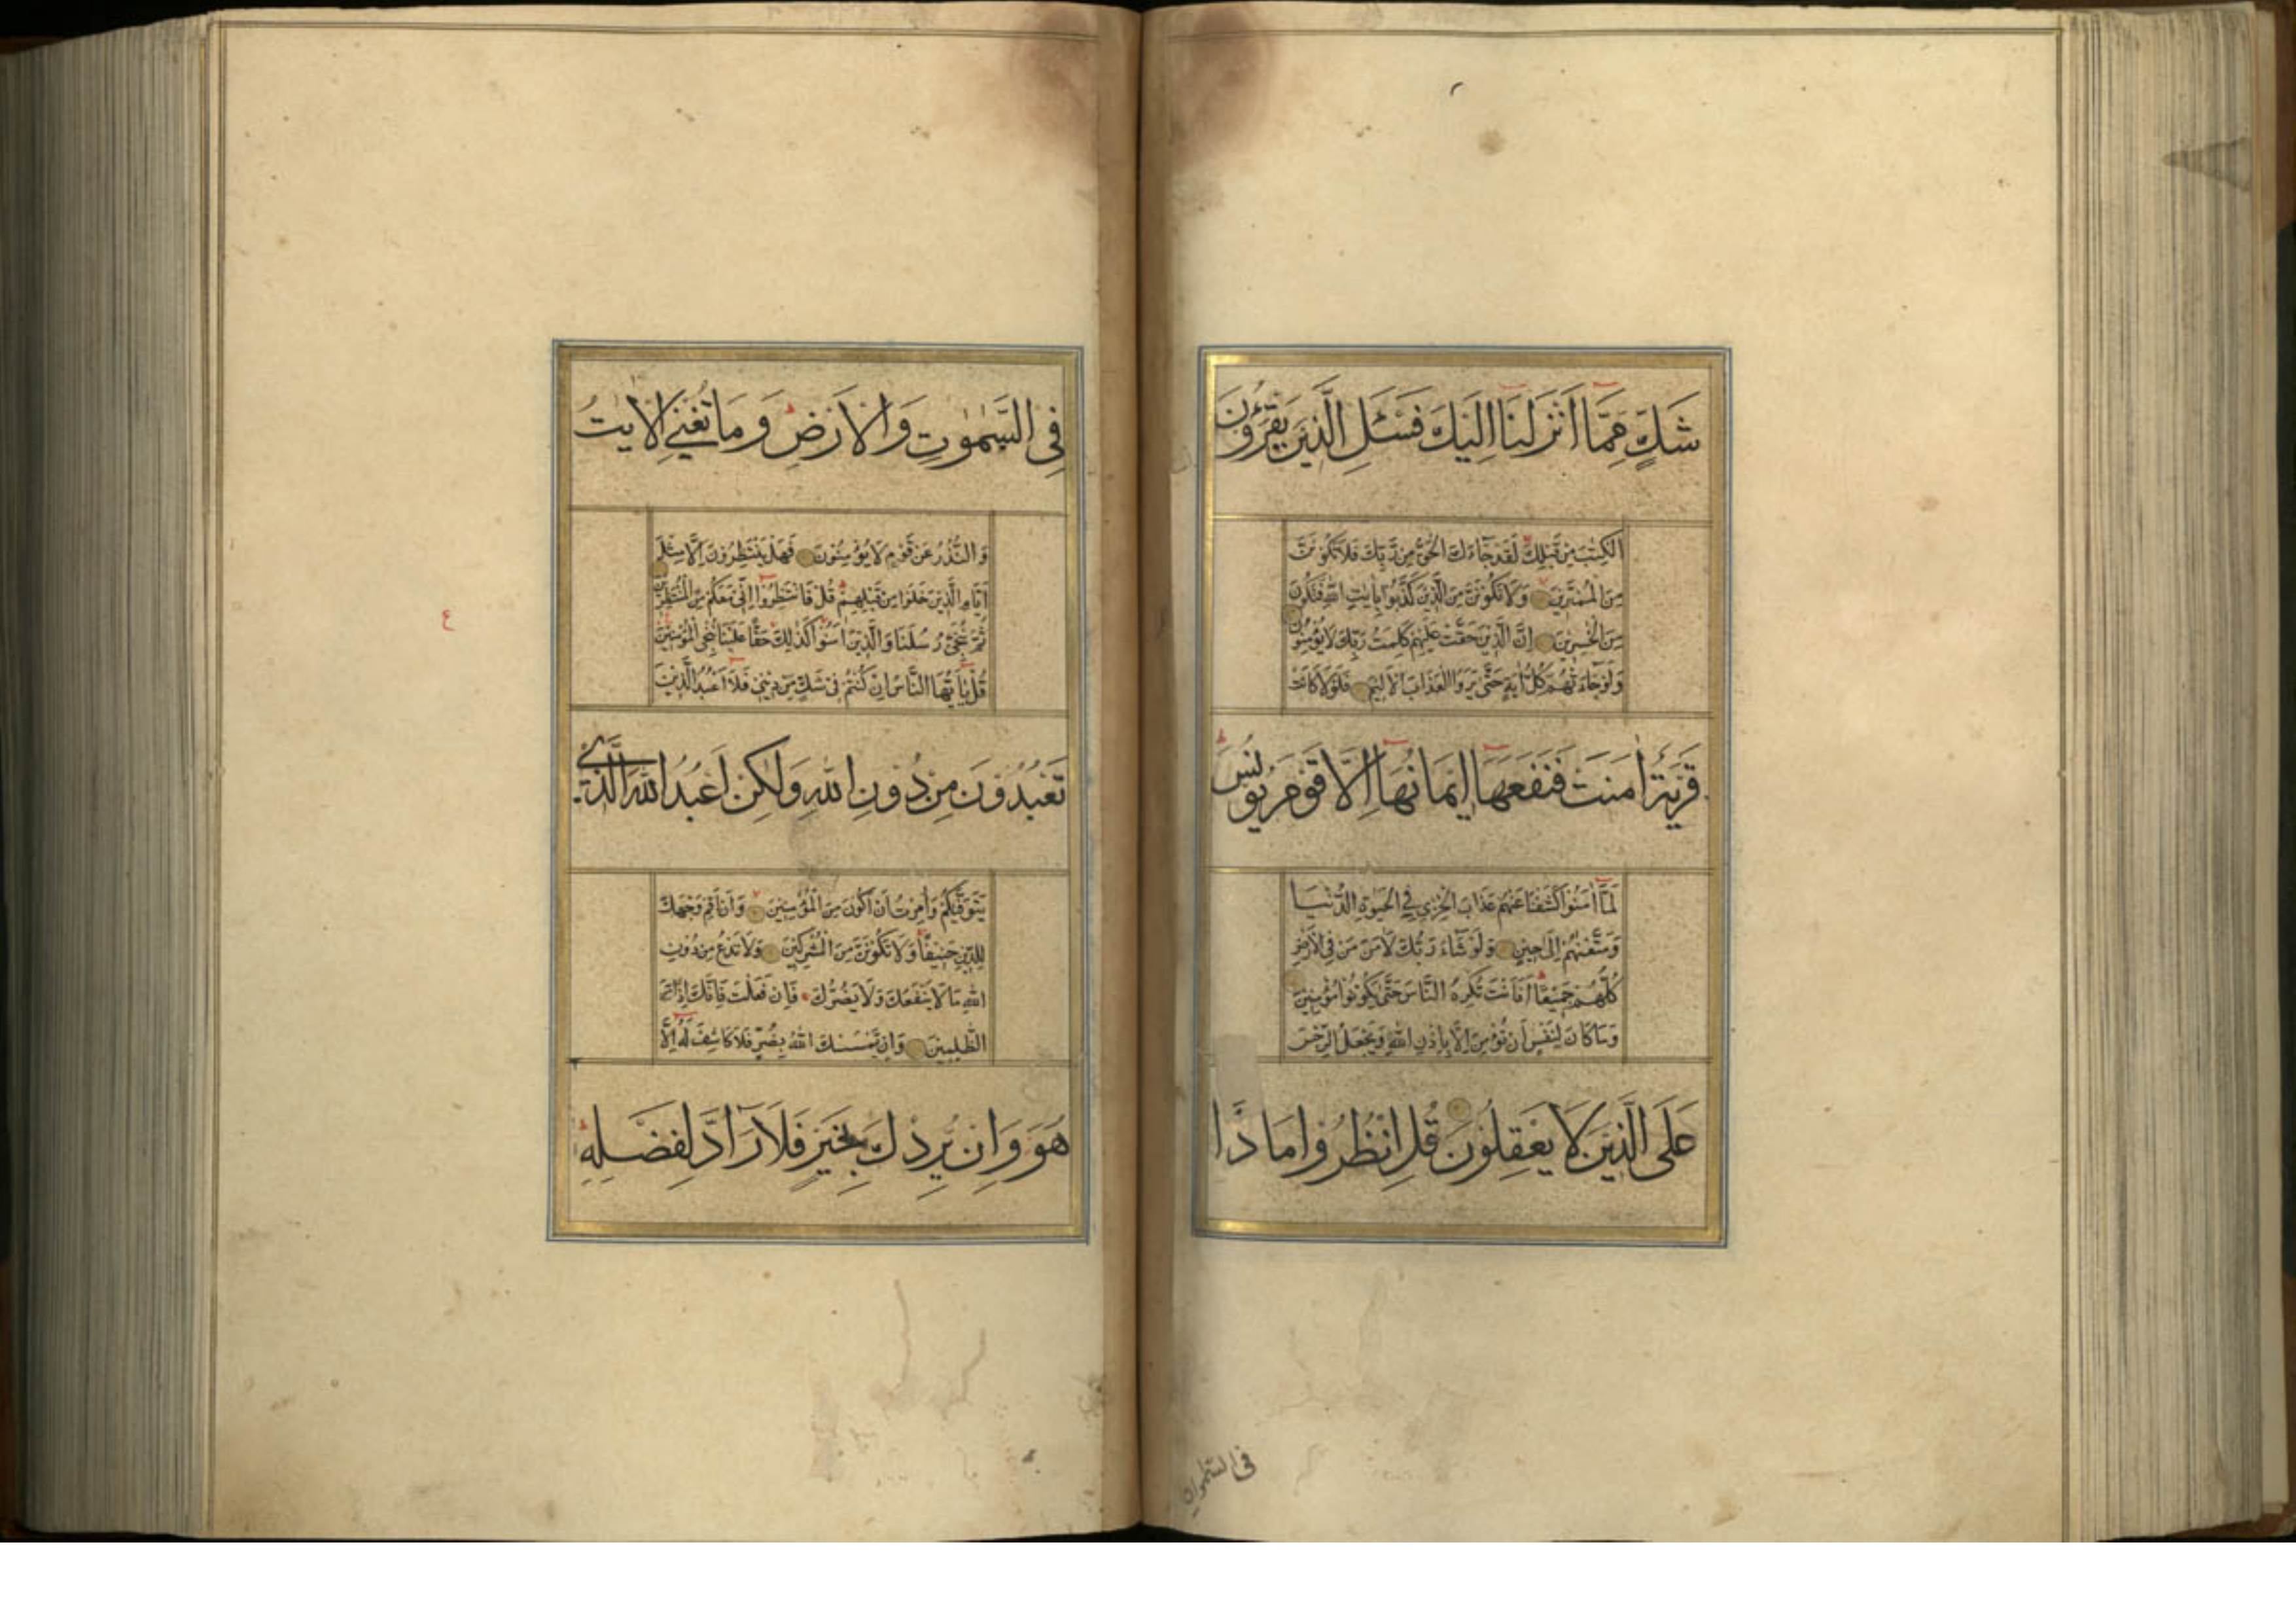 شَكٍّ مِمَّا اَنْزَلْنَا اِلَيْكَ فَسْـَٔلِ الَّذ۪ينَ يَقْرَؤُنَ
الْكِتٰبَ مِنْ قَبْلِكَ لَقَدْ جَاءَكَ الْحَقُّ مِنْ رَبِّكَ فَلَا تَكُونَنَّ
مِنَ الْمُمْتَر۪ينَ وَلَا تَكُونَنَّ مِنَ الَّذ۪ينَ كَذَّبُوا بِاٰيٰتِ اللّٰهِ فَتَكُونَ
مِنَ الْخٰسِر۪ينَ اِنَّ الَّذ۪ينَ حَقَّتْ عَلَيْهِمْ كَلِمَتُ رَبِّكَ لَا يُؤْمِنُونَ
وَلَوْ جَاءَتْهُمْ كُلُّ اٰيَةٍ حَتّٰى يَرَوُا الْعَذَابَ الْاَل۪يمَ فَلَوْلَا كَانَتْ
قَرْيَةٌ اٰمَنَتْ فَنَفَعَهَا ا۪يمَانُهَا اِلَّا قَوْمَ يُونُسَ
لَمَّا اٰمَنُوا كَشَفْنَا عَنْهُمْ عَذَابَ الْخِزْيِ فِي الْحَيٰوةِ الدُّنْيَا
وَمَتَّعْنٰهُمْ اِلٰى ح۪ينٍ وَلَوْ شَاءَ رَبُّكَ لَاٰمَنَ مَنْ فِي الْاَرْضِ
كُلُّهُمْ جَم۪يعًا اَفَاَنْتَ تُكْرِهُ النَّاسَ حَتّٰى يَكُونُوا مُؤْمِن۪ينَ
وَمَا كَانَ لِنَفْسٍ اَنْ تُؤْمِنَ اِلَّا بِاِذْنِ اللّٰهِ وَيَجْعَلُ الرِّجْسَ
عَلَى الَّذ۪ينَ لَا يَعْقِلُونَ قُلِ انْظُرُوا مَاذَا
فى السموات
فِي السَّمٰوٰتِ وَالْاَرْضِ وَمَا تُغْنِي الْاٰيٰتُ
وَالنُّذُرُ عَنْ قَوْمٍ لَا يُؤْمِنُونَ فَهَلْ يَنْتَظِرُونَ اِلَّا مِثْلَ
اَيَّامِ الَّذ۪ينَ خَلَوْا مِنْ قَبْلِهِمْ قُلْ فَانْتَظِرُوا اِنّ۪ي مَعَكُمْ مِنَ الْمُنْتَظِر۪ينَ
ثُمَّ نُنَجّ۪ي رُسُلَنَا وَالَّذ۪ينَ اٰمَنُوا كَذٰلِكَ حَقًّا عَلَيْنَا نُنْجِ الْمُؤْمِن۪ينَ
قُلْ يَا اَيُّهَا النَّاسُ اِنْ كُنْتُمْ ف۪ي شَكٍّ مِنْ د۪ين۪ي فَلَا اَعْبُدُ الَّذ۪ينَ
تَعْبُدُونَ مِنْ دُونِ اللّٰهِ وَلٰكِنْ اَعْبُدُ اللّٰهَ الَّذ۪ي
يَتَوَفّٰيكُمْ وَاُمِرْتُ اَنْ اَكُونَ مِنَ الْمُؤْمِن۪ينَ وَاَنْ اَقِمْ وَجْهَكَ
لِلدّ۪ينِ حَن۪يفًا وَلَا تَكُونَنَّ مِنَ الْمُشْرِك۪ينَ وَلَا تَدْعُ مِنْ دُونِ
اللّٰهِ مَا لَا يَنْفَعُكَ وَلَا يَضُرُّكَ فَاِنْ فَعَلْتَ فَاِنَّكَ اِذًا مِنَ
الظّٰلِم۪ينَ وَاِنْ يَمْسَسْكَ اللّٰهُ بِضُرٍّ فَلَا كَاشِفَ لَهُ اِلَّا
هُوَ وَاِنْ يُرِدْكَ بِخَيْرٍ فَلَا رَادَّ لِفَضْلِهِ
ع